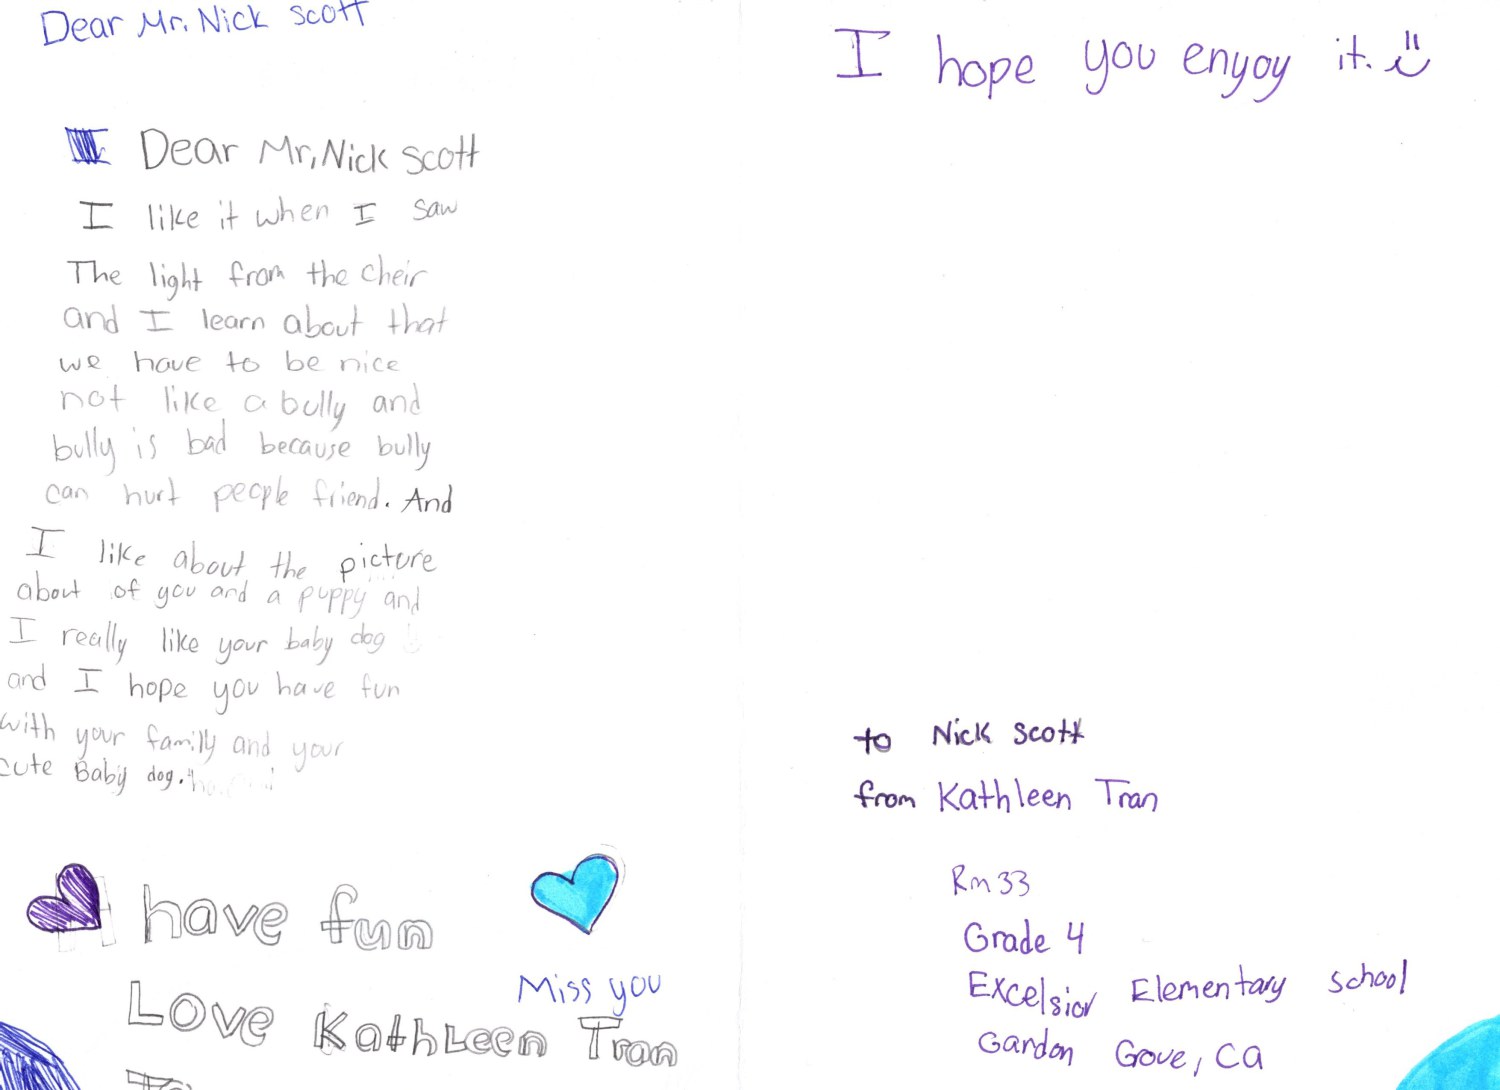 Dear Mr. Nick scott
Dear Mr, Nick scott
I like it when I saw
The light from the cheir
and I learn about that
we have to be nice
not like a bully and
bully is bad because bully
can hurt people friend. And
I like about the picture
about of you and a puppy and
I really like your baby dog
and I hope you have fun
with your family and your
cute Baby dog.
have fun
Miss you
Love Kathleen Tran
I hope you enyoy it.
to Nick scott
from Kathleen Tran
Rm 33
Grade 4
Excelsior Elementary school
Gardon Grove, CA